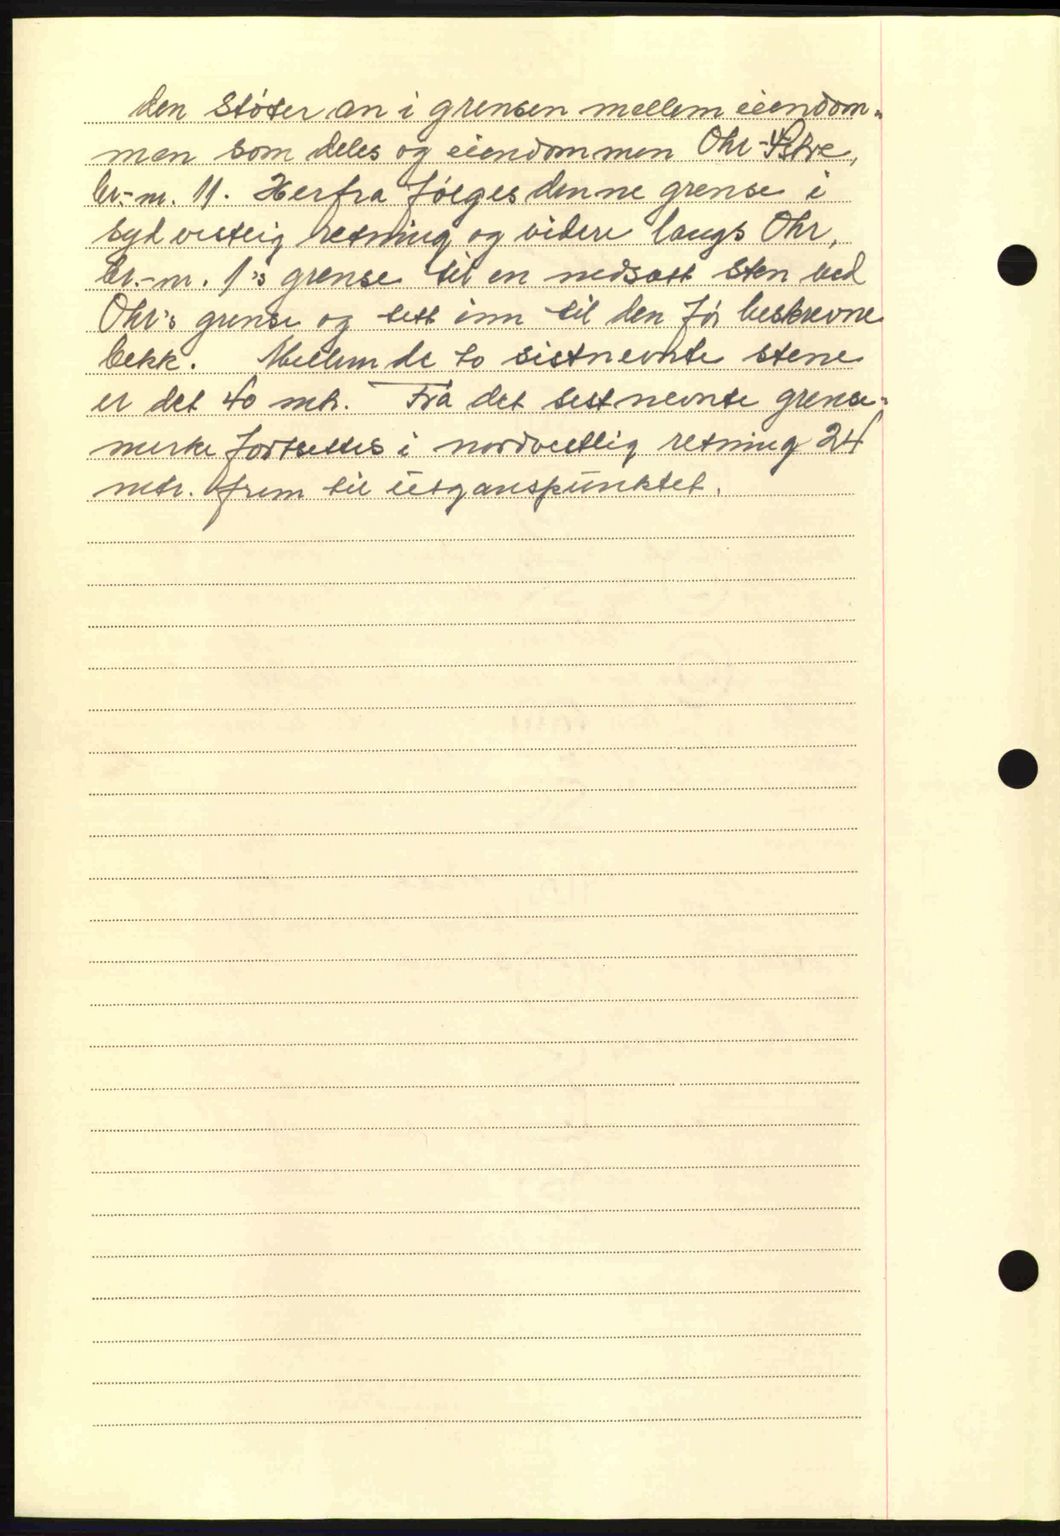 den støter an i grensen mellem eiendom-
men som deles og eiendommen Ohr -
br.-nr. 11. Herfra følges denne grense i
sydvestlig retning og videre langs Ohr,
br.-nr. 1's grense til en nedsatt sten ved
Ohr's grense og tett inn til den før beskrevne
bekk. Mellem de to sistnevnte stene
er det 40 mtr. Fra det sistnevnte grense-
merke fortsettes i nordvestlig retning 24
mtr. frem til utganspunktet.